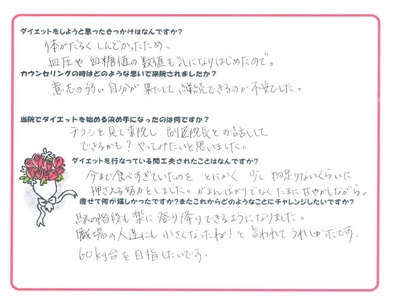 ダイエットをしようと思ったきっかけはなんですか?
体がだるく しんどかったため、
血圧や 血糖値の数値も気になりはじめたので。
カウンセリングの時はどのような思いで来院されましたか?
意志の弱い自分が果たして 継続できるのか不安でした。
当院でダイエットを始める決め手になったのは何ですか?
チラシを見て来院し 副医院長との話しして
できるかも? やってみたいと思いました。
ダイエットを行なっている間工夫されたことはなんですか?
今まで食べすぎていたのを とにかく 物足りないくらいに
押さえる努力をしました。がまんばかりでなく たまに甘やかしながら。
痩せて何が嬉しかったですか?またこれからどのようなことにチャレンジしたいですか?
駅の階段も楽に登り降りできるようになりました。
職場の人達にも 小さくなったね! と 言われて うれしかったです。
60kg台を目指したいです。